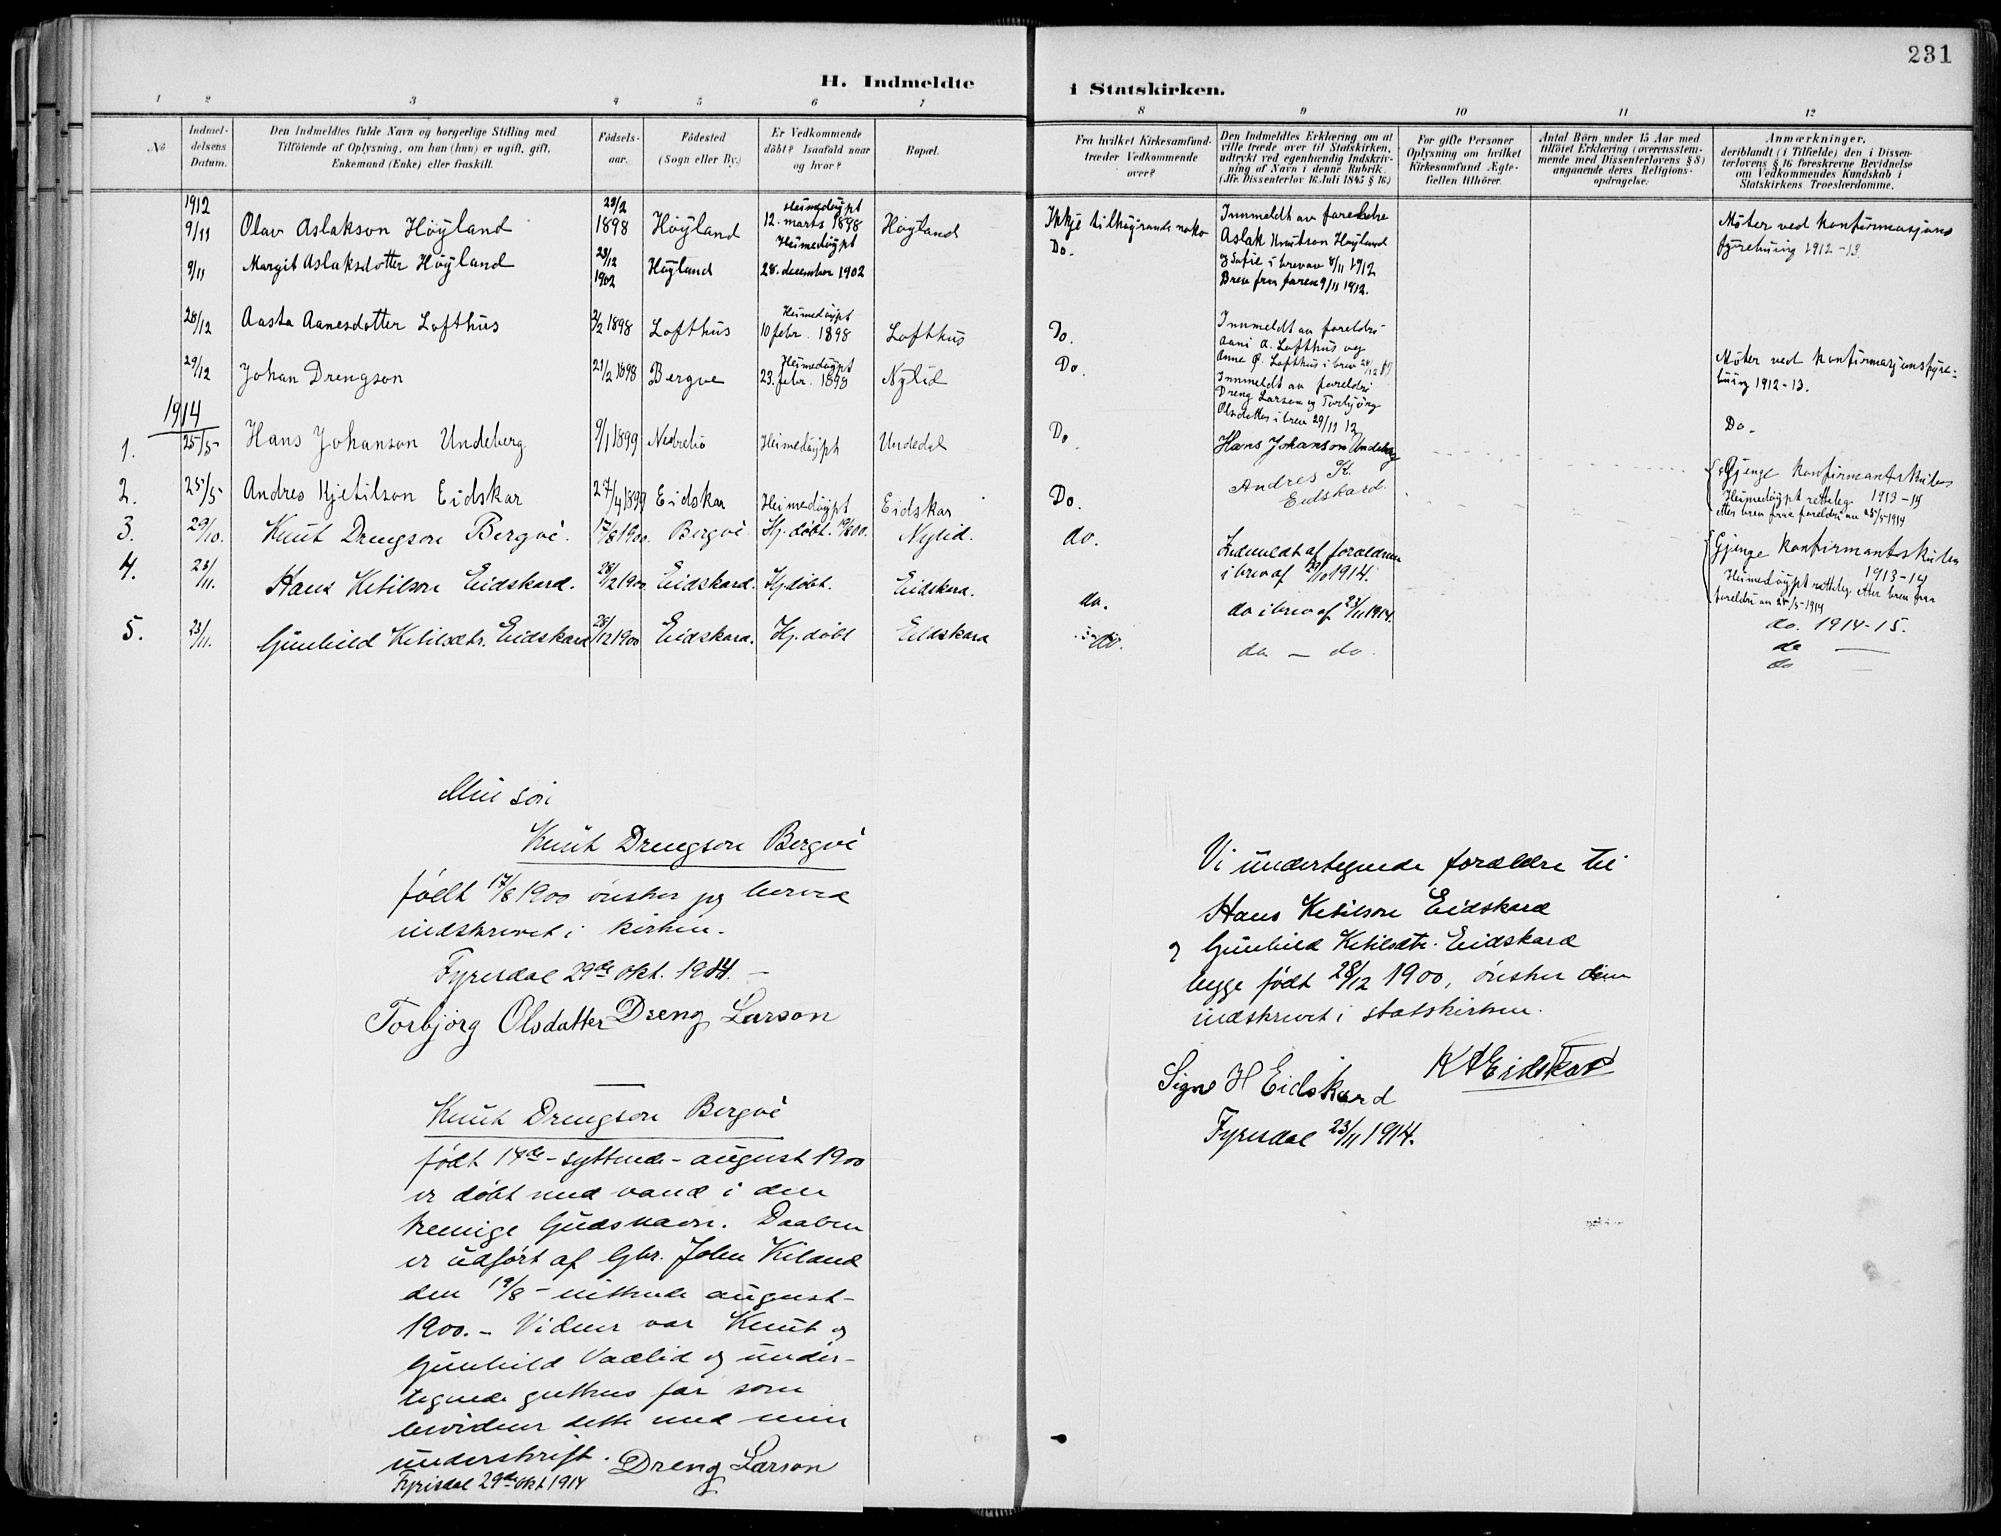 231
H. Indmeldte i Statskirken.
1 2 3 4 5 6 7 8 9 10 11 12
No
Indmel-
delsens
Datum.
Den Indmeldtes fulde Navn og borgerlige Stilling med
Tilföiende af Oplysning, om han (hun) er ugift, gift,
Enkemand (Enke) eller fraskilt.
Födsels-
aar.
Födested
(Sogn eller By.)
Er Vedkommende
döbt? Isaafald naar
og hvor?
Bopæl.
Fra hvilket Kirkesamfund
træder Vedkommende
over?
Den Indmeldtes Erklæring om at
ville træde over til Statskirken,
udtrykt ved egenhændig Indskriv-
ning af Navn i denne Rubrik.
(Jfr. Dissenterlov 16 Juli 1845 § 16)
For gifte Personer
Oplysning om hvilket
Kirkesamfund Ægte-
fællen tilhörer.
Antal Börn under 15 Aar med
tilföiet Erklæring (overensstem-
mende med Dissenterlovens § 8)
angaaende deres Religions-
opdragelse.
Anmærkninger,
deriblandt (i Tilfælde) den i Dissen-
terlovens § 16 foreskrevne Bevidnelse
om Vedkommendes Kundskab i
Statskirkens Troeslærdomme.
1912
9/11 Olav Aslakson Höyland 28/2 1898 Höyland Heimedöypt 12. marts 1898 Höyland Ikkje tilhögrande noko Innmeldt av foreldre
Aslak Knutson Höyland
og Sofie i brev av 8/11 1912
Brev fraa faren 9/11 1912.
Möter ved konfirmasjons
fyrebuing 1912-13
9/11 Margit Aslaksdotter Höyland 28/12 1902 Höyland Heimedöypt 28. december 1902 Do.
28/12 Aasta Aanesdotter Lofthus 2/2 1898 Lofthus Heimedöypt 10 febr. 1898 Lofthus Do. Innmeldt av foreldri
Aani A. Lofthus og
Anne Ø. Lofthus i brev 28/12
29/12 Johan Drengson 21/2 1898 Bergve Heimedöypt 23. febr. 1898 Nylid Do. Innmeldt av foreldri
Dreng Larson og Torbjörg
Olsdotter i brev 29/12 12
Möter ved konfirmasjonsfyre-
buing 1912-13.
1914
1. 25/5 Hans Johanson Undeberg 9/1 1899 Nedrebö Heimedöypt Undedal Do Hans Johanson Undeberg Do.
2. 25/5 Andres Kjetilson Eidskar 27/4 1899 Eidskar Heimedöypt Eidskar Do. Andres K.
Eidskard.
Gjenge konfirmantskulen
1913-14
Heimedöypt retteleg
etter brev fraa foreldri av 25/5-1914
3. 29/10. Knut Drengson Bergvé 17/8 1900. Bergvé Hj. döbt. 19/8 00. Nylid. do. Indmeldt af forældrene
i brev af 29/10 1914.
Gjenge konfirmantskulen
1913-14
Heimedöypt retteleg etter brev fraa
foreldri av 25/5-1914
4. 23/11. Hans Ketilson Eidskard. 28/12 1900 Eidskard. Hj. döbt. Eidskard. do. do i brev af 23/11 1914.
do. 1914-15.
5. 23/11. Gunhild Ketilsdtr. Eidskard 28/12 1900 Eidskard. Hj. döbt Eidskard do. do — do.
do —
do —
Min sön
Knut Drengson Bergvé
födt 17/8 1900 önsker jeg herved
indskrevet i kirken.
Fyresdal 29de okt. 1914. —
Torbjörg Olsdatter Dreng Larson
Knut Drengson Bergvé
födt 17de - syttende - august 1900
er döbt med vand i den
treenige Guds navn. Daaben
er udfört af Gbr. John Kiland
den 19/8 - nittende august -
1900. - Vidner var Knut og
Gunhild Vaalid og under-
tegnede guttens far som
bevidner dette med min
underskrift. Dreng Larson
Fyrisdal 29de okt 1914
Vi undertegnede forældre til
Hans Ketilson Eidskard
og Gunhild Ketilsdtr. Eidskard
begge födt 28/12 1900, önsker dem
indskrevet i statskirken.
Signe H Eidskard K A Eidskard
Fyresdal 23/11 1914.